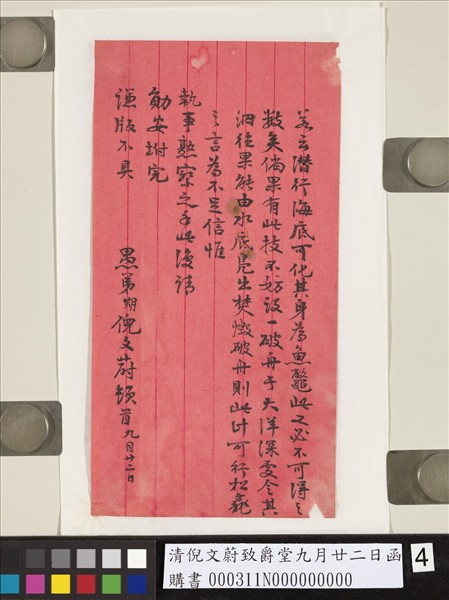 若云潛行海底可化其身為魚鼈此之必不可得之
數矣倘果有此技不妨設一破舟于大洋深處令其
泅往果能由水底昆出焚燬破舟則此計可行松龕
之言為不足信惟
執事熟察之手此復請
勛安坿完
謙版不具
愚弟期倪文蔚頓首九月廿二日
清倪文蔚致爵堂九月廿二日函
購書 000311N000000000
4